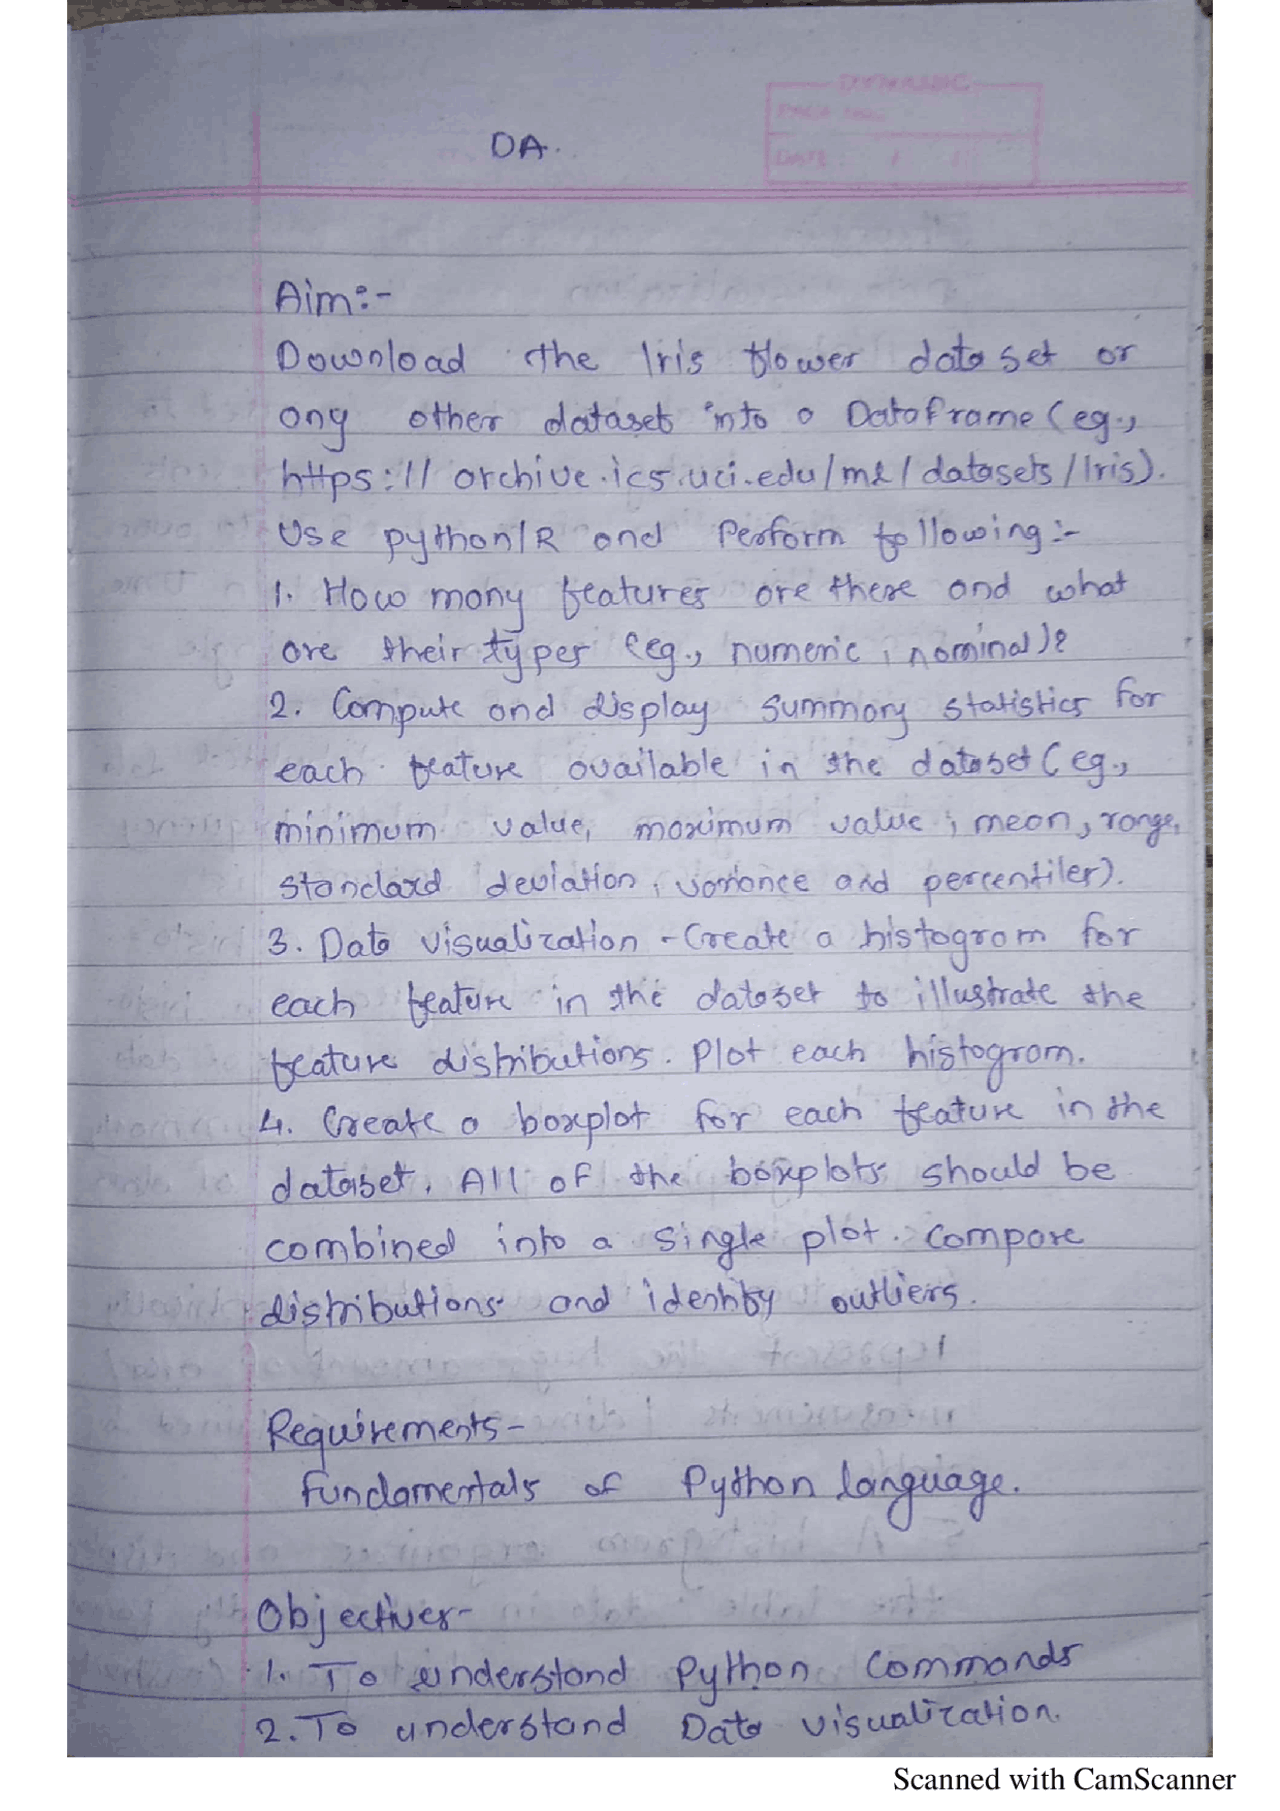 DA.
PAGE NO.
DATE : / /
Aim:-
Download the Iris flower data set or
any other dataset into a DataFrame (eg.,
https:// archive.ics.uci.edu/ml/datasets/Iris).
Use python/R and Perform following:-
1. How many features are there and what
are their types (eg., numeric, nominal)?
2. Compute and display summary statistics for
each feature available in the dataset (eg.,
minimum value, maximum value, mean, range,
standard deviation, variance and percentiles).
3. Data visualization - Create a histogram for
each feature in the dataset to illustrate the
feature distributions. Plot each histogram.
4. Create a boxplot for each feature in the
dataset. All of the boxplots should be
combined into a single plot. Compare
distributions and identify outliers.
Requirements-
Fundamentals of Python language.
Objectives-
1. To understand Python Commands
2. To understand Data visualization.
Scanned with CamScanner